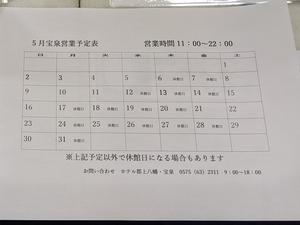 5月宝泉営業予定表 営業時間11：00～22：00
日 月 火 水 木 金 土
1
2 3 4 5 6 休館日 7 8
9 10 11 休館日 12 休館日 13 休館日 14 休館日 15
16 17 休館日 18 休館日 19 休館日 20 休館日 21 休館日 22
23 24 休館日 25 休館日 26 休館日 27 休館日 28 休館日 29
30 31 休館日
※上記予定以外で休館日になる場合もあります
お問い合わせ ホテル郡上八幡・宝泉 0575（63）2311 9：00～18：00